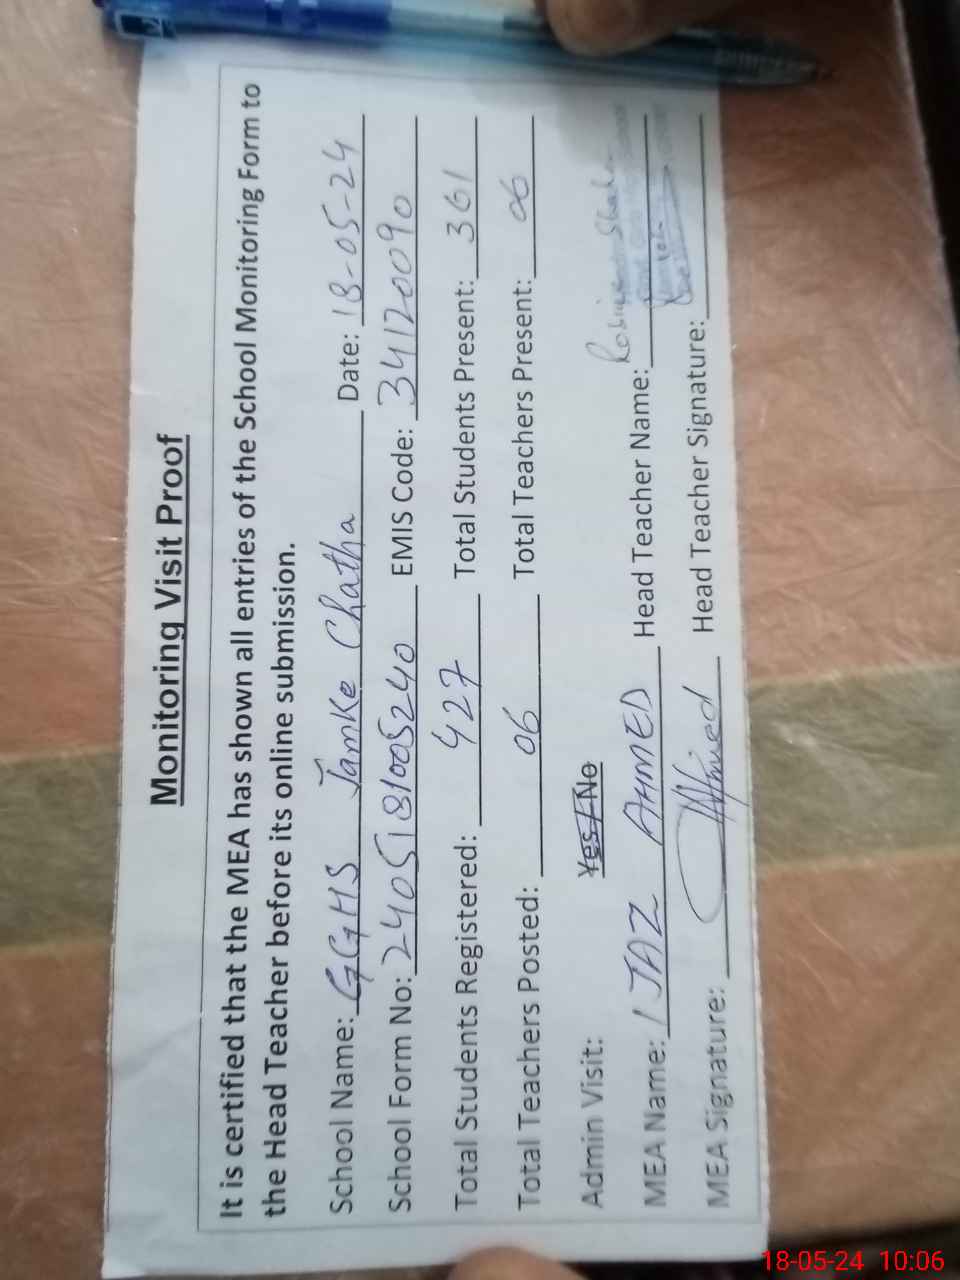 Monitoring Visit Proof
It is certified that the MEA has shown all entries of the School Monitoring Form to
the Head Teacher before its online submission.
School Name: GGHS Jamke Chatha Date: 18-05-24
School Form No: 2405181005240 EMIS Code: 34120090
Total Students Registered: 427 Total Students Present: 361
Total Teachers Posted: 06 Total Teachers Present: 06
Admin Visit: Yes / No
MEA Name: IJAZ AHMED Head Teacher Name:
MEA Signature: Ahmed Head Teacher Signature:
18-05-24 10:06